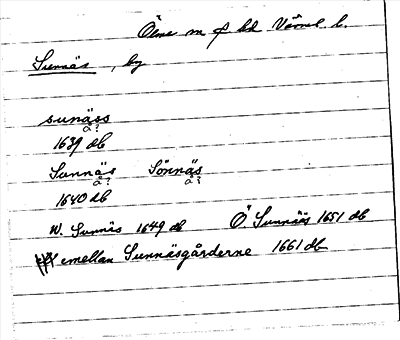 Ölme m fl hd Värml. l.
Sunnäs, by
sunäss
å?
1639 db
Sunnäs Sönnäs
å? å?
1640 db
W. Sunnäs 1649 db Ö. Sunnäs 1651 db
emellan Sunnäsgårderne 1661 db